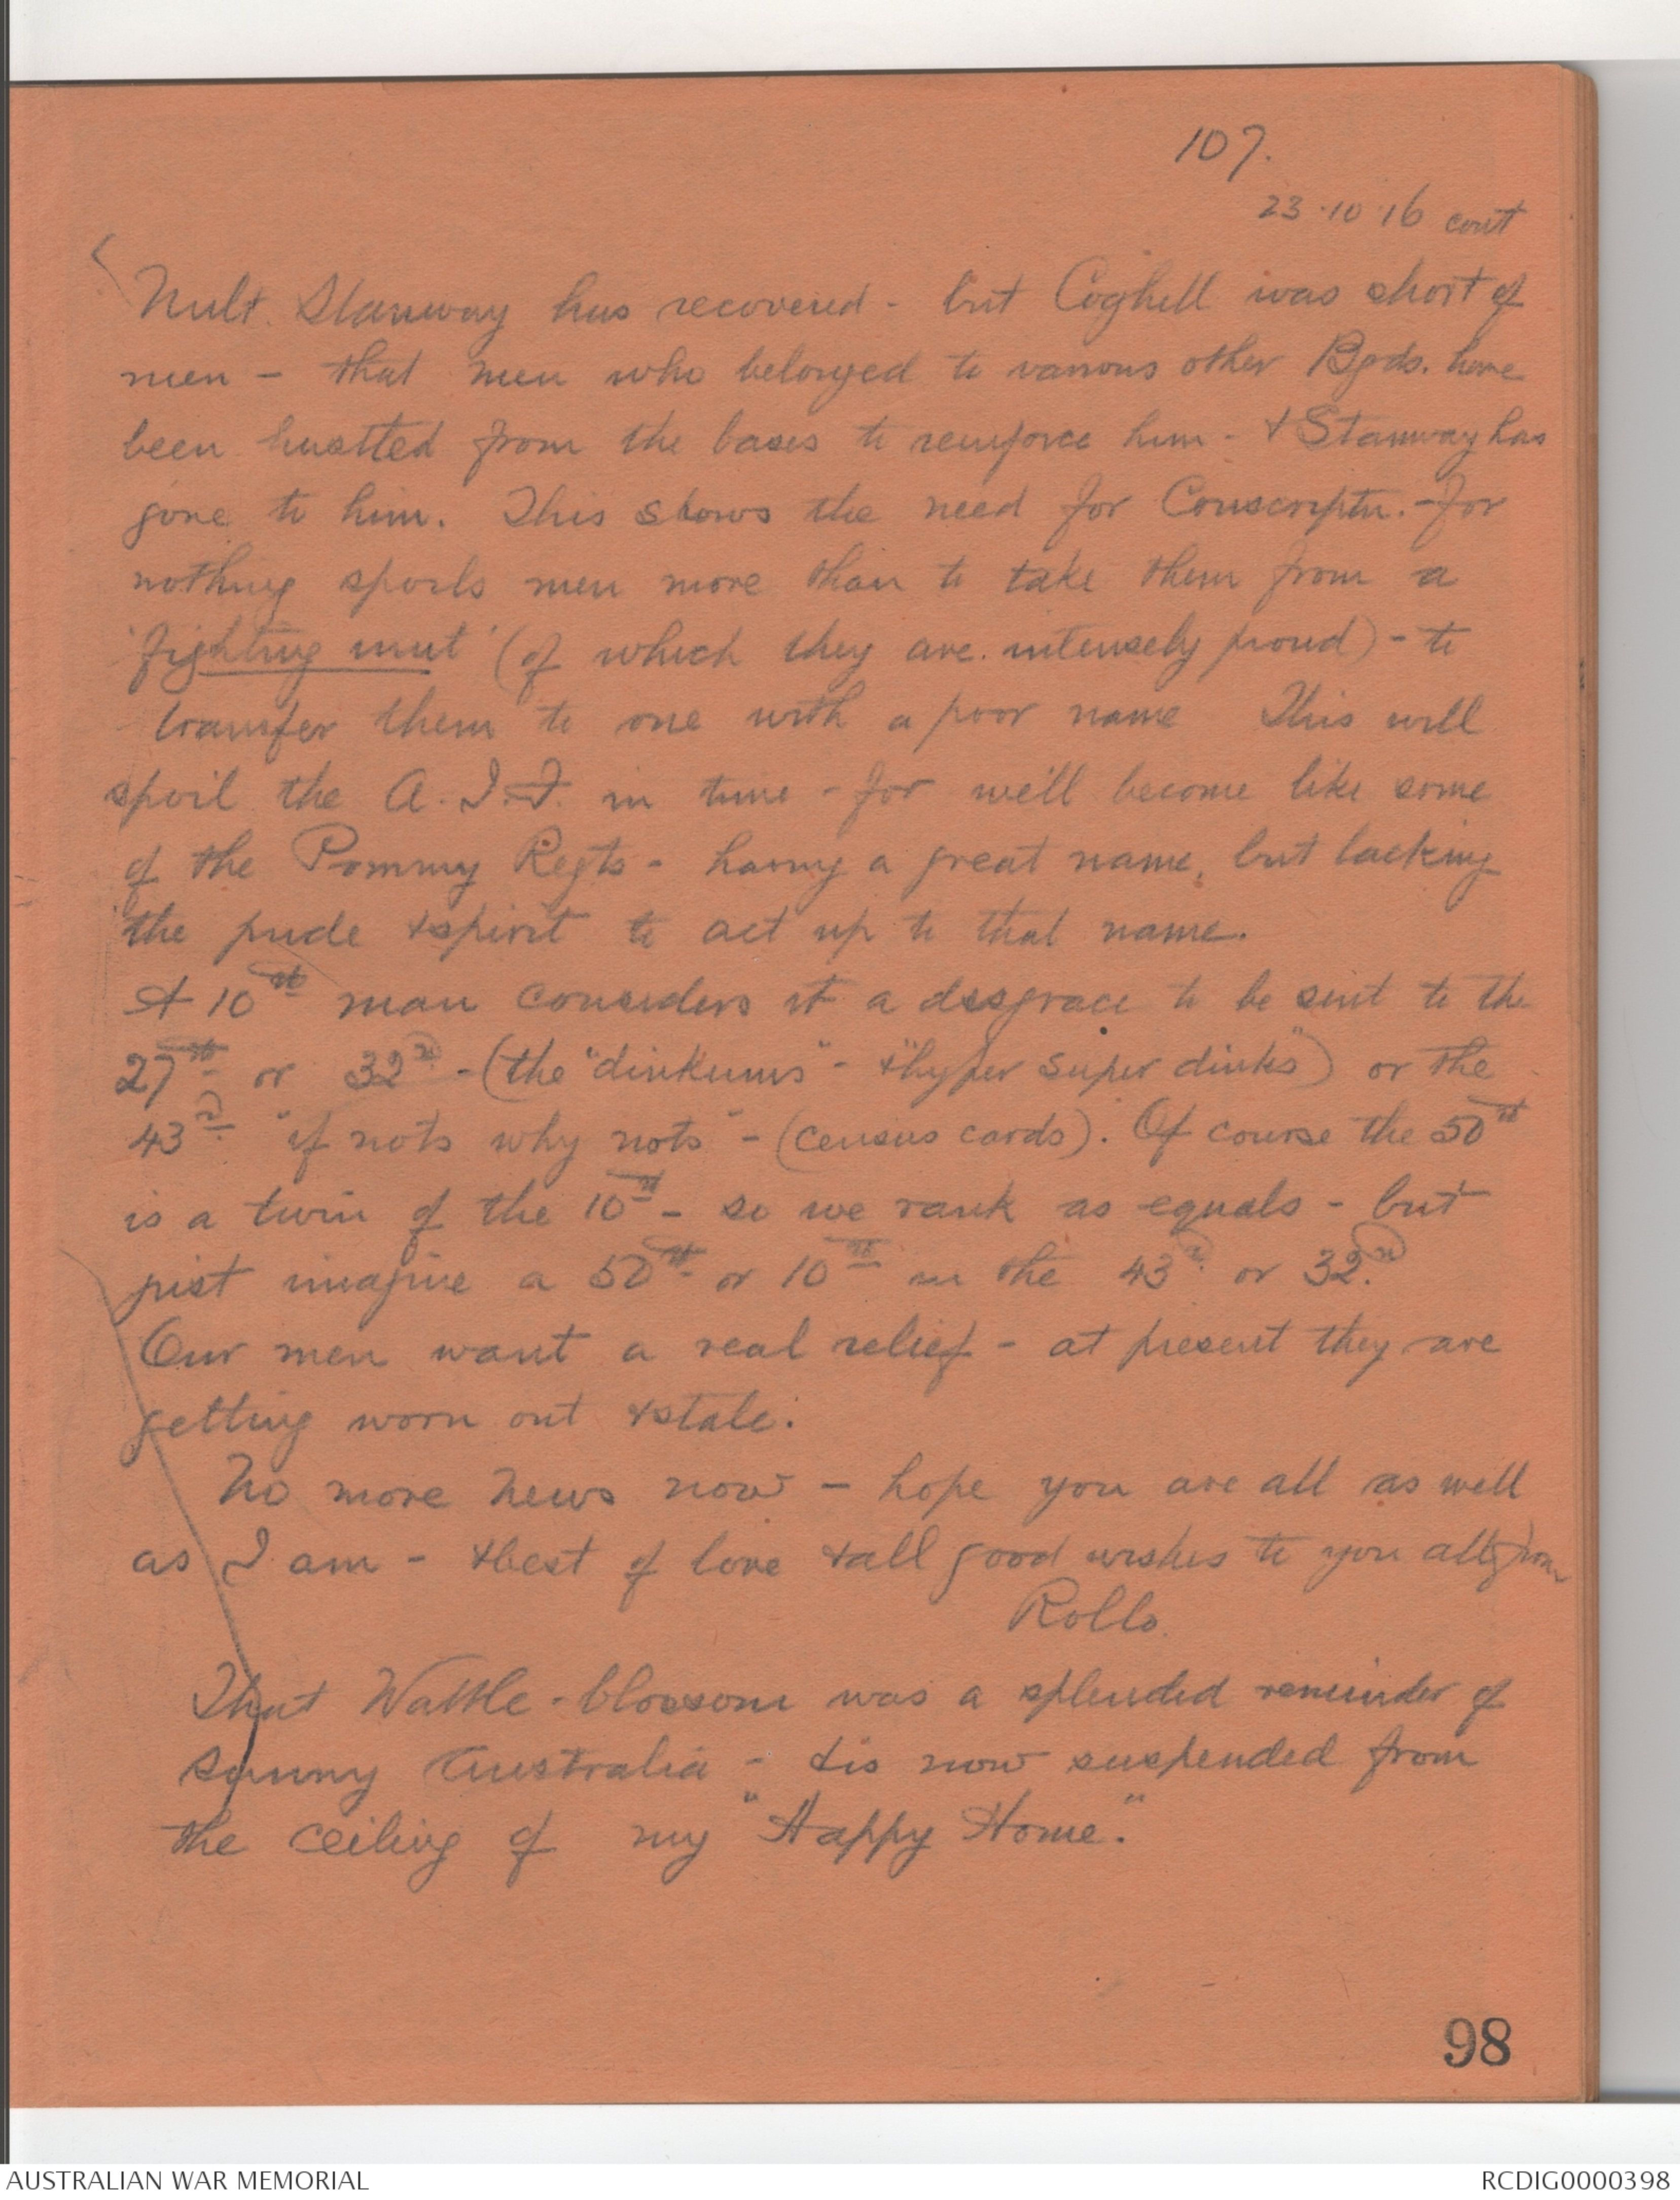 107.
23.10.16 cont
Mult. Stanway has recovered - but Coghill was short of
men - that men who belonged to various other Bgds. have
been hustled from the bases to reinforce him - & Stanway has
gone to him. This shows the need for Conscriptn. - for
nothing spoils men more than to take them from a
'fighting unit' (of which they are intensely proud) - to
transfer them to one with a poor name This will
spoil the A.I.F. in time - for we'll become like some
of the Pommy Regts - having a great name, but lacking
the pride & spirit to act up to that name.
A 10th man considers it a disgrace to be sent to the
27th or 32nd - (the "dinkums" - & "hyper super dinks") or the
43rd "if nots why nots" - (census cards). Of course the 50th
is a twin of the 10th - so we rank as equals - but
just imagine a 50th or 10th in the 43rd or 32nd.
Our men want a real relief - at present they are
getting worn out & stale.
No more news now - hope you are all as well
as I am - & best of love & all good wishes to you all from
Rollo.
That Wattle-blossom was a splended reminder of
sunny Australia - & is now suspended from
the ceiling of my "Happy Home."
98
AUSTRALIAN WAR MEMORIAL
RCDIG0000398